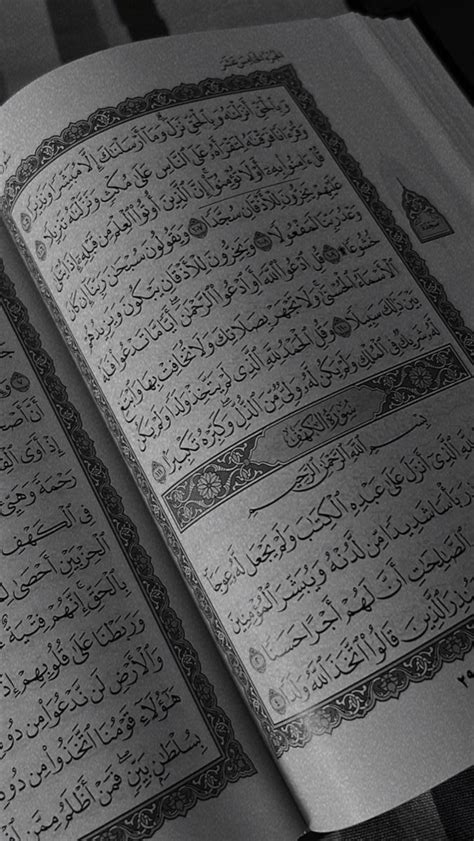 الجزء الخامس عشر
وَبِٱلْحَقِّ أَنزَلْنَٰهُ وَبِٱلْحَقِّ نَزَلَ ۗ وَمَآ أَرْسَلْنَٰكَ إِلَّا مُبَشِّرًا وَنَذِيرًا ١٠٥
وَقُرْءَانًا فَرَقْنَٰهُ لِتَقْرَأَهُۥ عَلَى ٱلنَّاسِ عَلَىٰ مُكْثٍ وَنَزَّلْنَٰهُ تَنزِيلًا ١٠٦
قُلْ ءَامِنُوا۟ بِهِۦٓ أَوْ لَا تُؤْمِنُوٓا۟ ۚ إِنَّ ٱلَّذِينَ أُوتُوا۟ ٱلْعِلْمَ مِن قَبْلِهِۦٓ إِذَا يُتْلَىٰ
عَلَيْهِمْ يَخِرُّونَ لِلْأَذْقَانِ سُجَّدًا ١٠٧ وَيَقُولُونَ سُبْحَٰنَ رَبِّنَآ إِن كَانَ
وَعْدُ رَبِّنَا لَمَفْعُولًا ١٠٨ وَيَخِرُّونَ لِلْأَذْقَانِ يَبْكُونَ وَيَزِيدُهُمْ
خُشُوعًا ۩ ١٠٩ قُلِ ٱدْعُوا۟ ٱللَّهَ أَوِ ٱدْعُوا۟ ٱلرَّحْمَٰنَ ۖ أَيًّا مَّا تَدْعُوا۟ فَلَهُ
ٱلْأَسْمَآءُ ٱلْحُسْنَىٰ ۚ وَلَا تَجْهَرْ بِصَلَاتِكَ وَلَا تُخَافِتْ بِهَا وَٱبْتَغِ
بَيْنَ ذَٰلِكَ سَبِيلًا ١١٠ وَقُلِ ٱلْحَمْدُ لِلَّهِ ٱلَّذِى لَمْ يَتَّخِذْ وَلَدًا وَلَمْ يَكُن
لَّهُۥ شَرِيكٌ فِى ٱلْمُلْكِ وَلَمْ يَكُن لَّهُۥ وَلِىٌّ مِّنَ ٱلذُّلِّ ۖ وَكَبِّرْهُ تَكْبِيرًۢا ١١١
سُورَةُ الكَهْفِ
بِسْمِ ٱللَّهِ ٱلرَّحْمَٰنِ ٱلرَّحِيمِ
لِلَّهِ ٱلَّذِىٓ أَنزَلَ عَلَىٰ عَبْدِهِ ٱلْكِتَٰبَ وَلَمْ يَجْعَل لَّهُۥ عِوَجَا
بَأْسًا شَدِيدًا مِّن لَّدُنْهُ وَيُبَشِّرَ ٱلْمُؤْمِنِينَ
ٱلصَّٰلِحَٰتِ أَنَّ لَهُمْ أَجْرًا حَسَنًا ٢
ٱلَّذِينَ قَالُوا۟ ٱتَّخَذَ ٱللَّهُ وَلَدًا ٤
إِذْ أَوَى
رَحْمَةً وَهَيِّئْ
فِى ٱلْكَهْفِ
ٱلْحِزْبَيْنِ أَحْصَىٰ
بِٱلْحَقِّ ۚ إِنَّهُمْ فِتْيَةٌ
وَرَبَطْنَا عَلَىٰ قُلُوبِهِمْ إِذْ
وَٱلْأَرْضِ لَن نَّدْعُوَا۟ مِن دُونِهِ
هَٰٓؤُلَآءِ قَوْمُنَا ٱتَّخَذُوا۟ مِن دُونِهِ
بِسُلْطَٰنٍۭ بَيِّنٍ ۖ فَمَنْ أَظْلَمُ مِمَّنِ